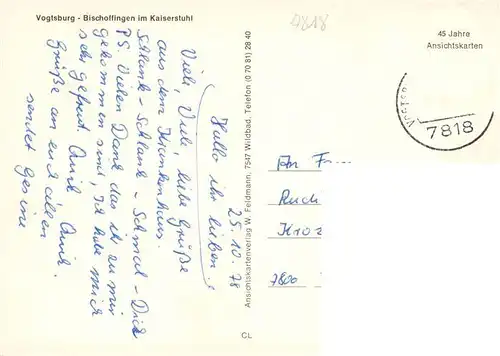 Vogtsburg - Bischoffingen im Kaiserstuhl
4818
45 Jahre
Ansichtskarten
7818
25.10.78
Hallo ihr lieben.
Viele, Viele, liebe Grüße
aus dem Krankenhaus.
Schlank - Schlank - Schmal - Dick
PS. Vielen Dank das ihr zu mir
gekommen sind, Ich habe mich
sehr gefreut. Quik Quik.
Grüße an euch allen
sendet Gesine
Ansichtskartenverlag W. Feldmann, 7547 Wildbad, Telefon (0 70 81) 28 40
CL
An F
Ruch
Kroz
7800